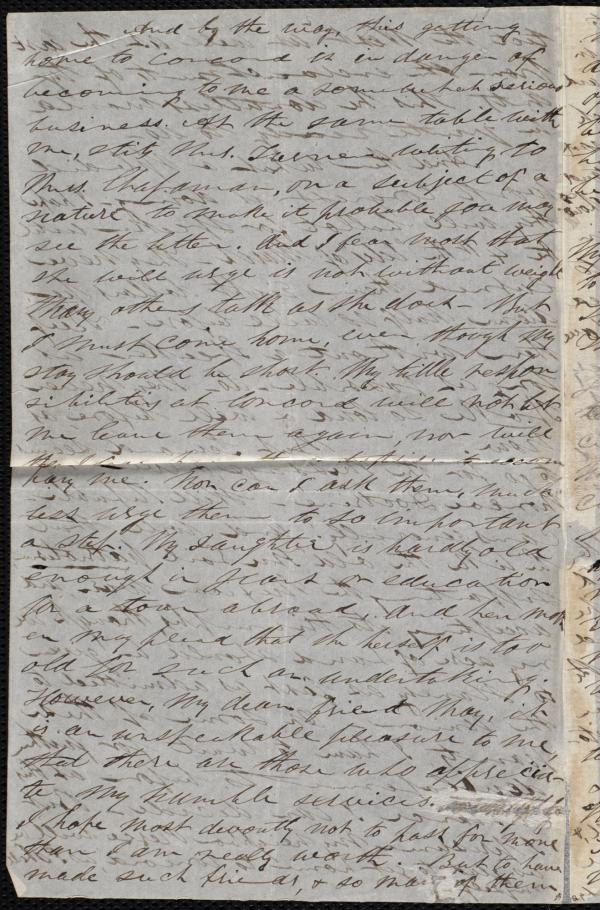 And by the way, this getting
home to Concord is in danger of
becoming to me a somewhat serious
business. At the same table with
me, sits Mrs. Turner writing to
Mrs. Chapman, on a subject of a
nature to make it probable you may
see the letter. And I fear most that
she will urge is not without weight
Many others talk as she does - that
I must come home, even though my
stay should be short. My little respon
sibilities at Concord will not let
me leave them again, nor will
pany me. Nor can I ask them, much
less urge them to so important
a step. My daughter is hardly old
enough in years or education
for a tour abroad. And her moth
er may plead that she herself is too
old for such an undertaking.
However, my dear friend May, it
is an unspeakable pleasure to me,
that there are those who apprecia
te my humble services.
I hope most devoutly not to pass for more
than I am really worth. But to have
made such friends, & so many of them